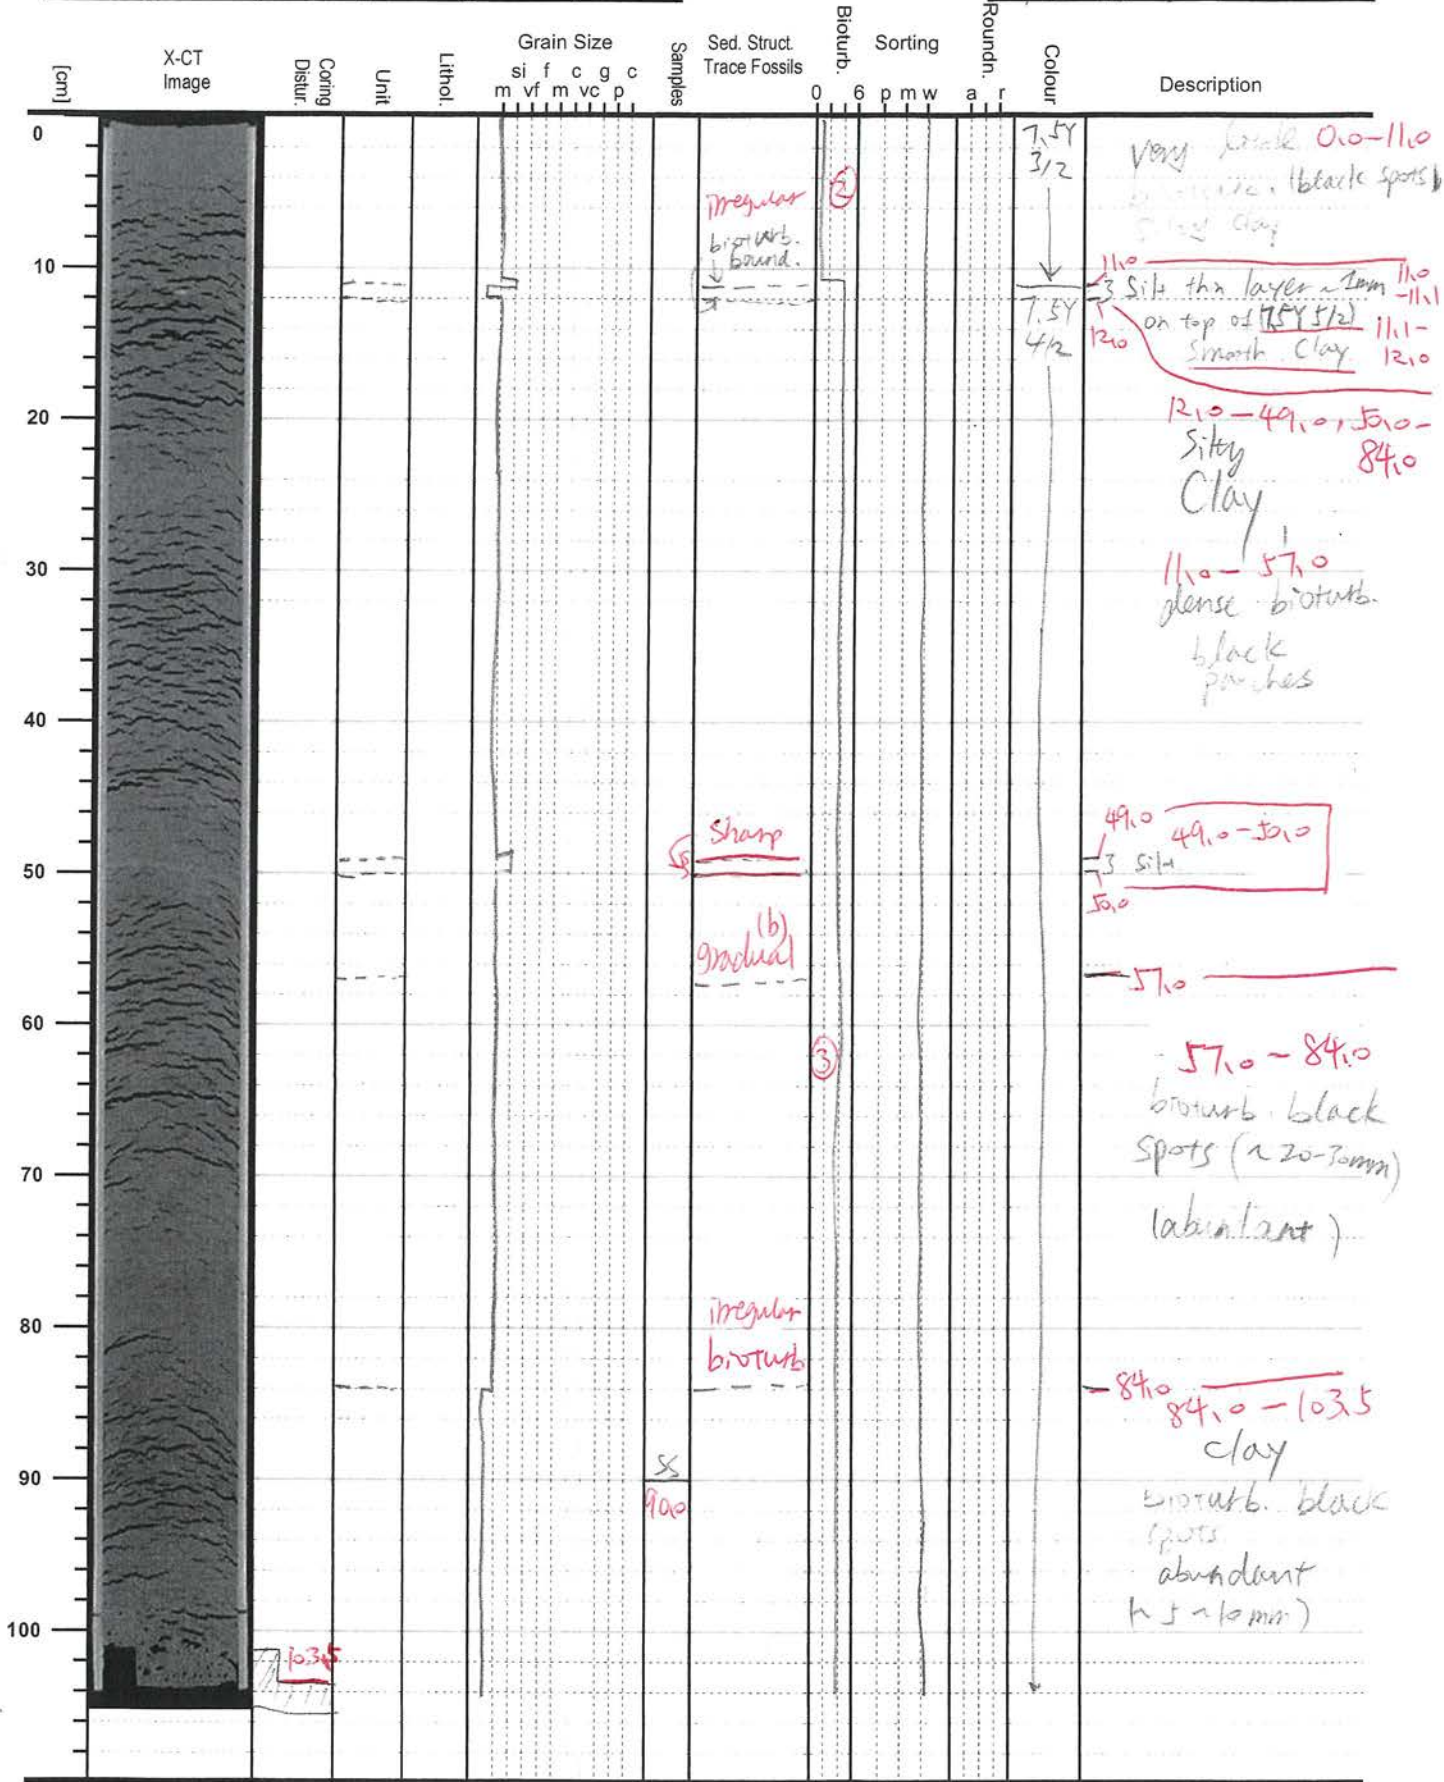 [cm]
X-CT
Image
Coring
Distur.
Unit
Lithol.
Grain Size
si f c g c
m vf m vc p
Samples
Sed. Struct.
Trace Fossils
Bioturb.
0 6
Sorting
p m w
Roundn.
a r
Colour
Description
0
10
20
30
40
50
60
70
80
90
100
103.5
SS
90.0
irregular
bioturb.
bound.
Sharp
(b)
gradual
irregular
bioturb
2
3
7.5Y
3/2
7.5Y
4/2
very 0.0-11.0
(black spots)
clay
11.0
Silt thin layer ~1mm 11.0
-11.1
on top of (7.5Y 5/2) 11.1-
12.0 Smooth Clay. 12.0
12.0-49.0, 50.0-
84.0
Silty
Clay
11.0-57.0
dense bioturb.
black
patches
49.0
49.0-50.0
Silt
50.0
57.0
57.0~84.0
bioturb. black
spots (~20-30mm)
(abundant)
84.0
84.0-103.5
clay
bioturb. black
spots.
abundant
(~5~10mm)